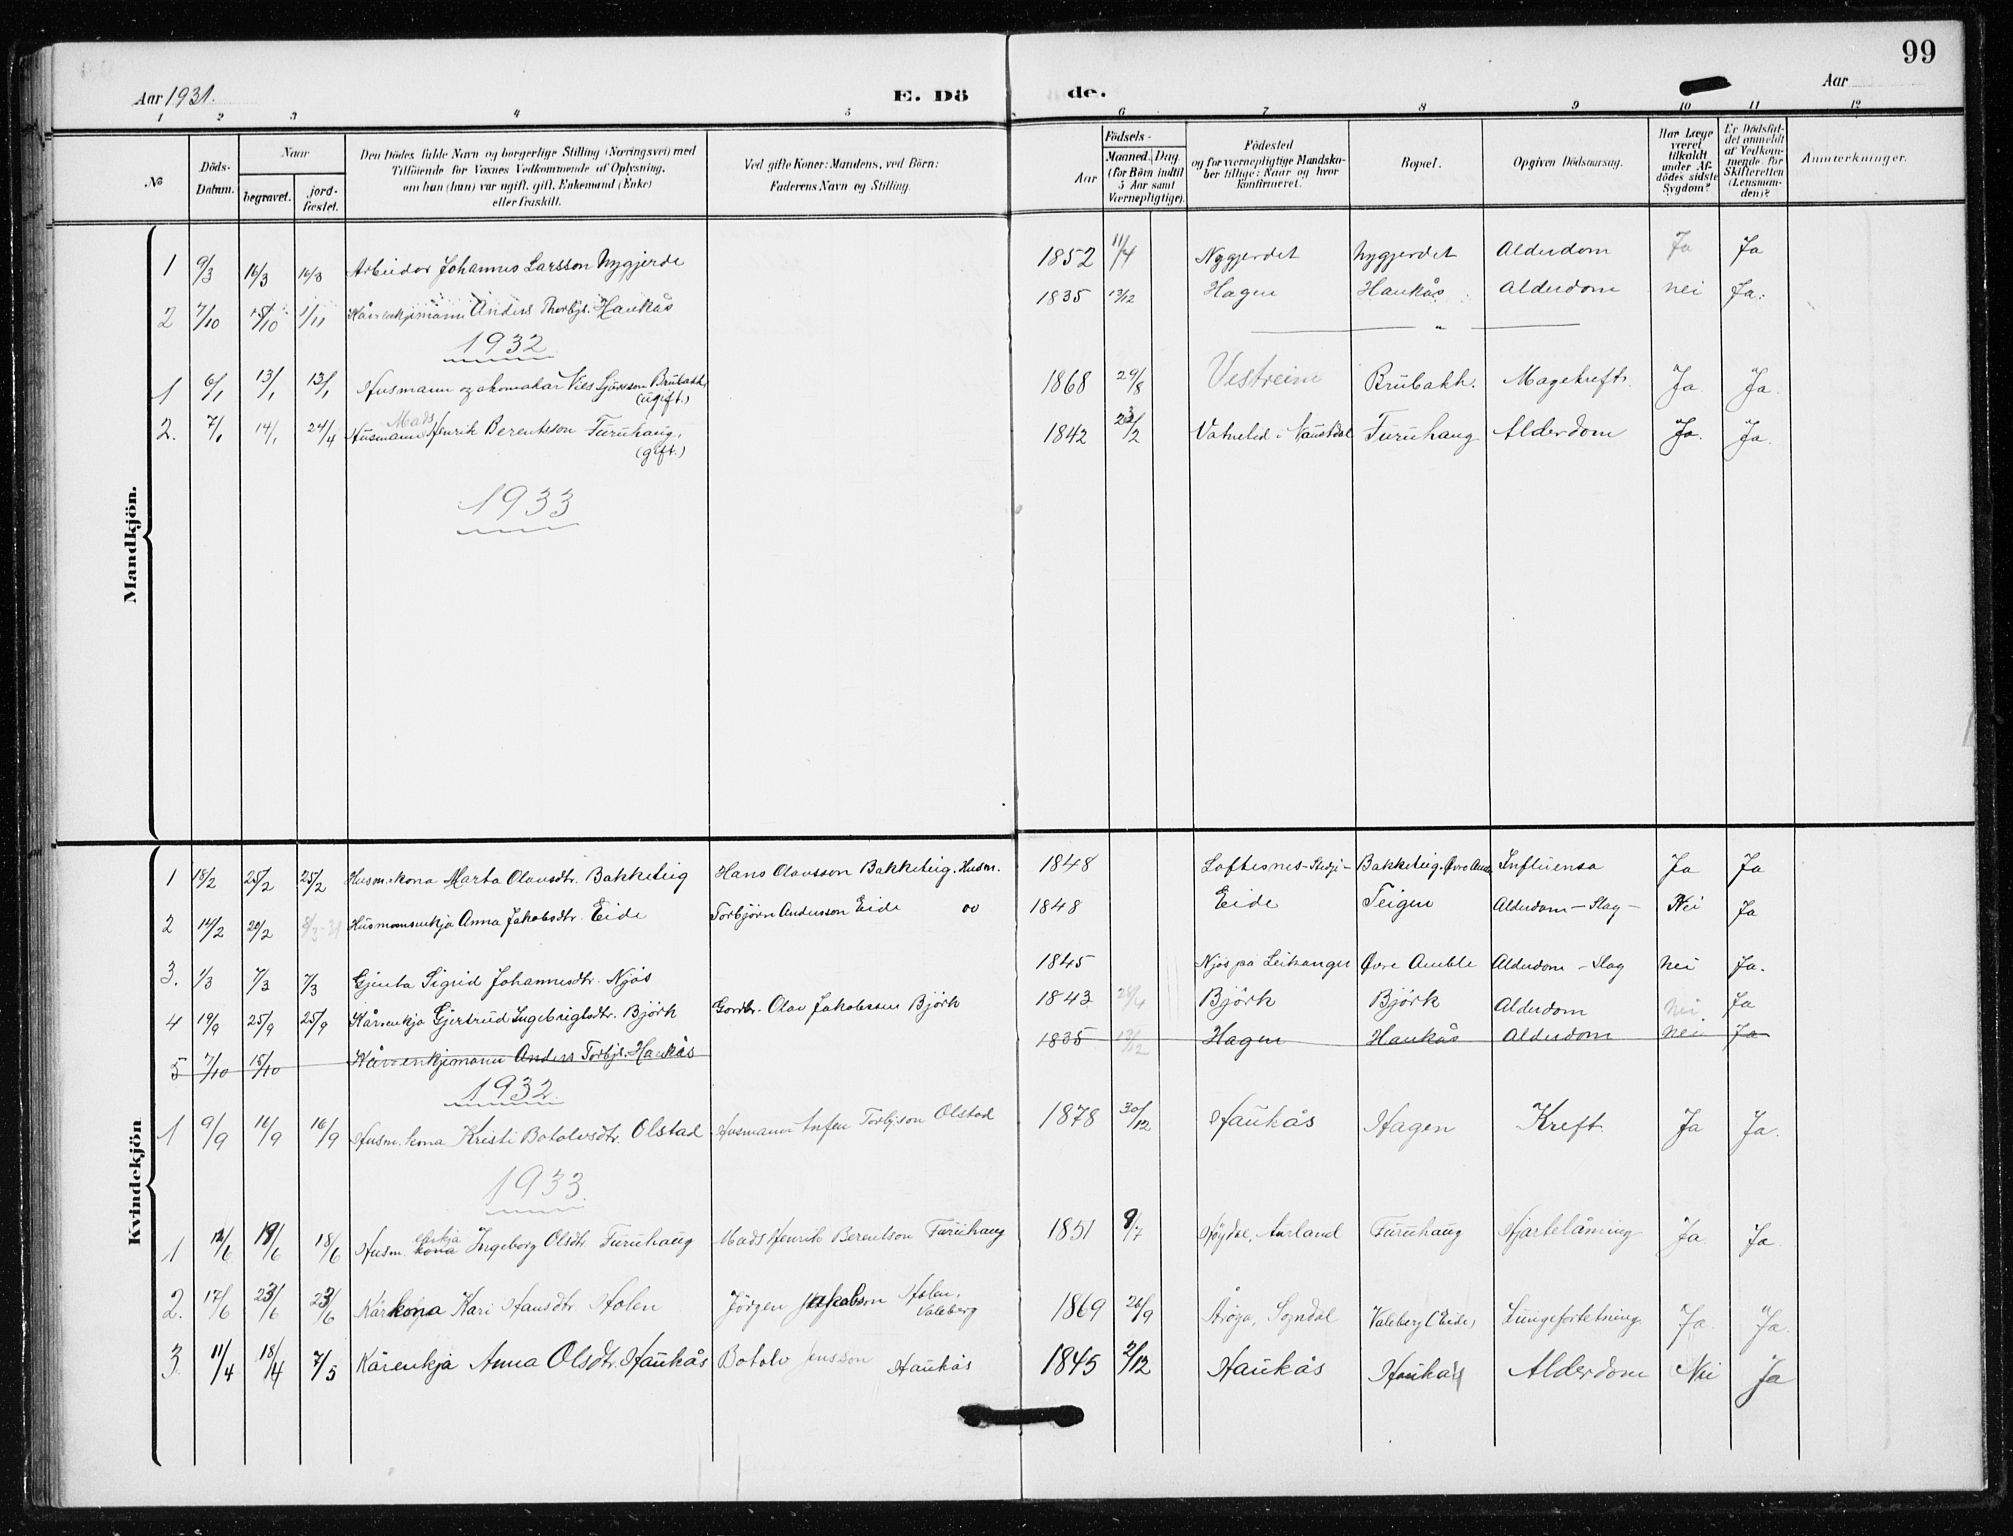 99
Aar 1931.
E. Dö de.
Aar
1 2 3 4 5 6 7 8 9 10 11 12
No
Döds-Datum.
Naar
begravet.
jord-fæstet.
Den Dödes fulde Navn og borgerlige Stilling (Næringsvei) med
Tilföiende for Voxnes Vedkommende af Oplysning,
om han (hun) var ugift, gift, Enkemand (Enke)
eller fraskilt.
Ved gifte Koner: Mandens, ved Börn:
Faderens Navn og Stilling.
Födsels-
Aar
Maaned. Dag
(for Börn indtil
5 Aar samt
Værnepligtige).
Födested
og for værnepligtige Mandska-
ber tillige: Naar og hvor
konfirmeret.
Bopæl.
Opgiven Dödsaarsag.
Har Læge
været
tilkaldt
under Af-
dödes sidste
Sygdom?
Er Dödsfal-
det anmeldt
af Vedkom-
mende for
Skifteretten
(Lensman-
den)?
Anmerkninger.
Mandkjön.
1 9/3 16/3 16/3 Arbeider Johannes Larsson Nygjerde 1852 11/4 Nygjerdet Nygjerdet Alderdom Ja Ja
2 7/10 15/10 1/11 Kårenkjemann Anders Thorbjs. Haukås 1835 13/12 Hagen Haukås Alderdom Nei Ja.
1932
1 6/1 13/1 13/1 Husmann og skomakar Nils Sjursson Brubakk (ugift.) 1868 29/8 Vestreim Brubakk. Magekreft. Ja. Ja.
2. 7/1 14/1 24/4 Husmann Mads Henrik Berentson Furuhaug. (gift.) 1842 23/2 Vatnelid i Naustdal Furuhaug Alderdom Ja. Ja.
1933
Kvindekjön
1 18/2 25/2 25/2 Husm.kona Marta Olausdtr. Bakketeig Hans Olavsson Bakketeig. Husm. 1848 Loftesnes-Stedje- Bakketeig. Øvre Amble Influensa Ja Ja
2 14/2 20/2 8/3-31 Husmannsenkja Anna Jakobsdtr. Eide Torbjörn Andersson Eide 1848 Eide Teigen Alderdom - Slag - Nei Ja
3. 1/3 7/3 7/3 Gjenta Sigrid Johannesdtr. Njös 1845 Njös paa Leikanger Øvre Amble Alderdom - Slag Nei Ja.
4 19/9 25/9 25/9 Kårenkja Gjertrud Ingebrigtsdtr. Björk Gardbr. Olav Jakobssen Björk 1843 28/4 Björk Björk Alderdom Nei Ja
5 7/10 15/10 Kårenkjemann Anders Torbjs. Haukås 1835 13/12 Hagen Haukås Alderdom Nei Ja
1932.
1 9/9 16/9 16/9 Husm. kona Kristi Botolvsdtr. Olstad Husmann Anfen Torbjson Olstad 1878 30/12 Haukås Hagen Kreft. Ja Ja.
1933.
1 12/6 18/6 18/6 Husm. kona enkja Ingeborg Olsdtr. Furuhaug Mads Henrik Berentson Furuhaug 1851 9/7 Høydal, Aurland Furuhaug Hjartelåming Ja. Ja.
2. 17/6 23/6 23/6 Kårkona Kari Hansdtr. Holen Jörgen Jakobson Holen, Valeberg 1869 26/9 Årøya, Sogndal Valeberg (Eide) Lungefortetning Ja. Ja.
3. 11/4 18/4 7/5 Kårenkja Anna Olsdtr. Haukås Botolv Jensson Haukås 1845 2/12 Haukås Haukås Alderdom Nei Ja